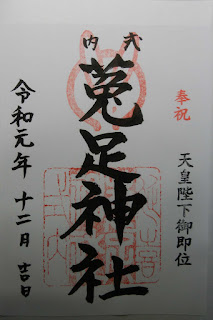 奉祝
天皇陛下御即位
式内
菟足神社
令和元年 十二月 吉日